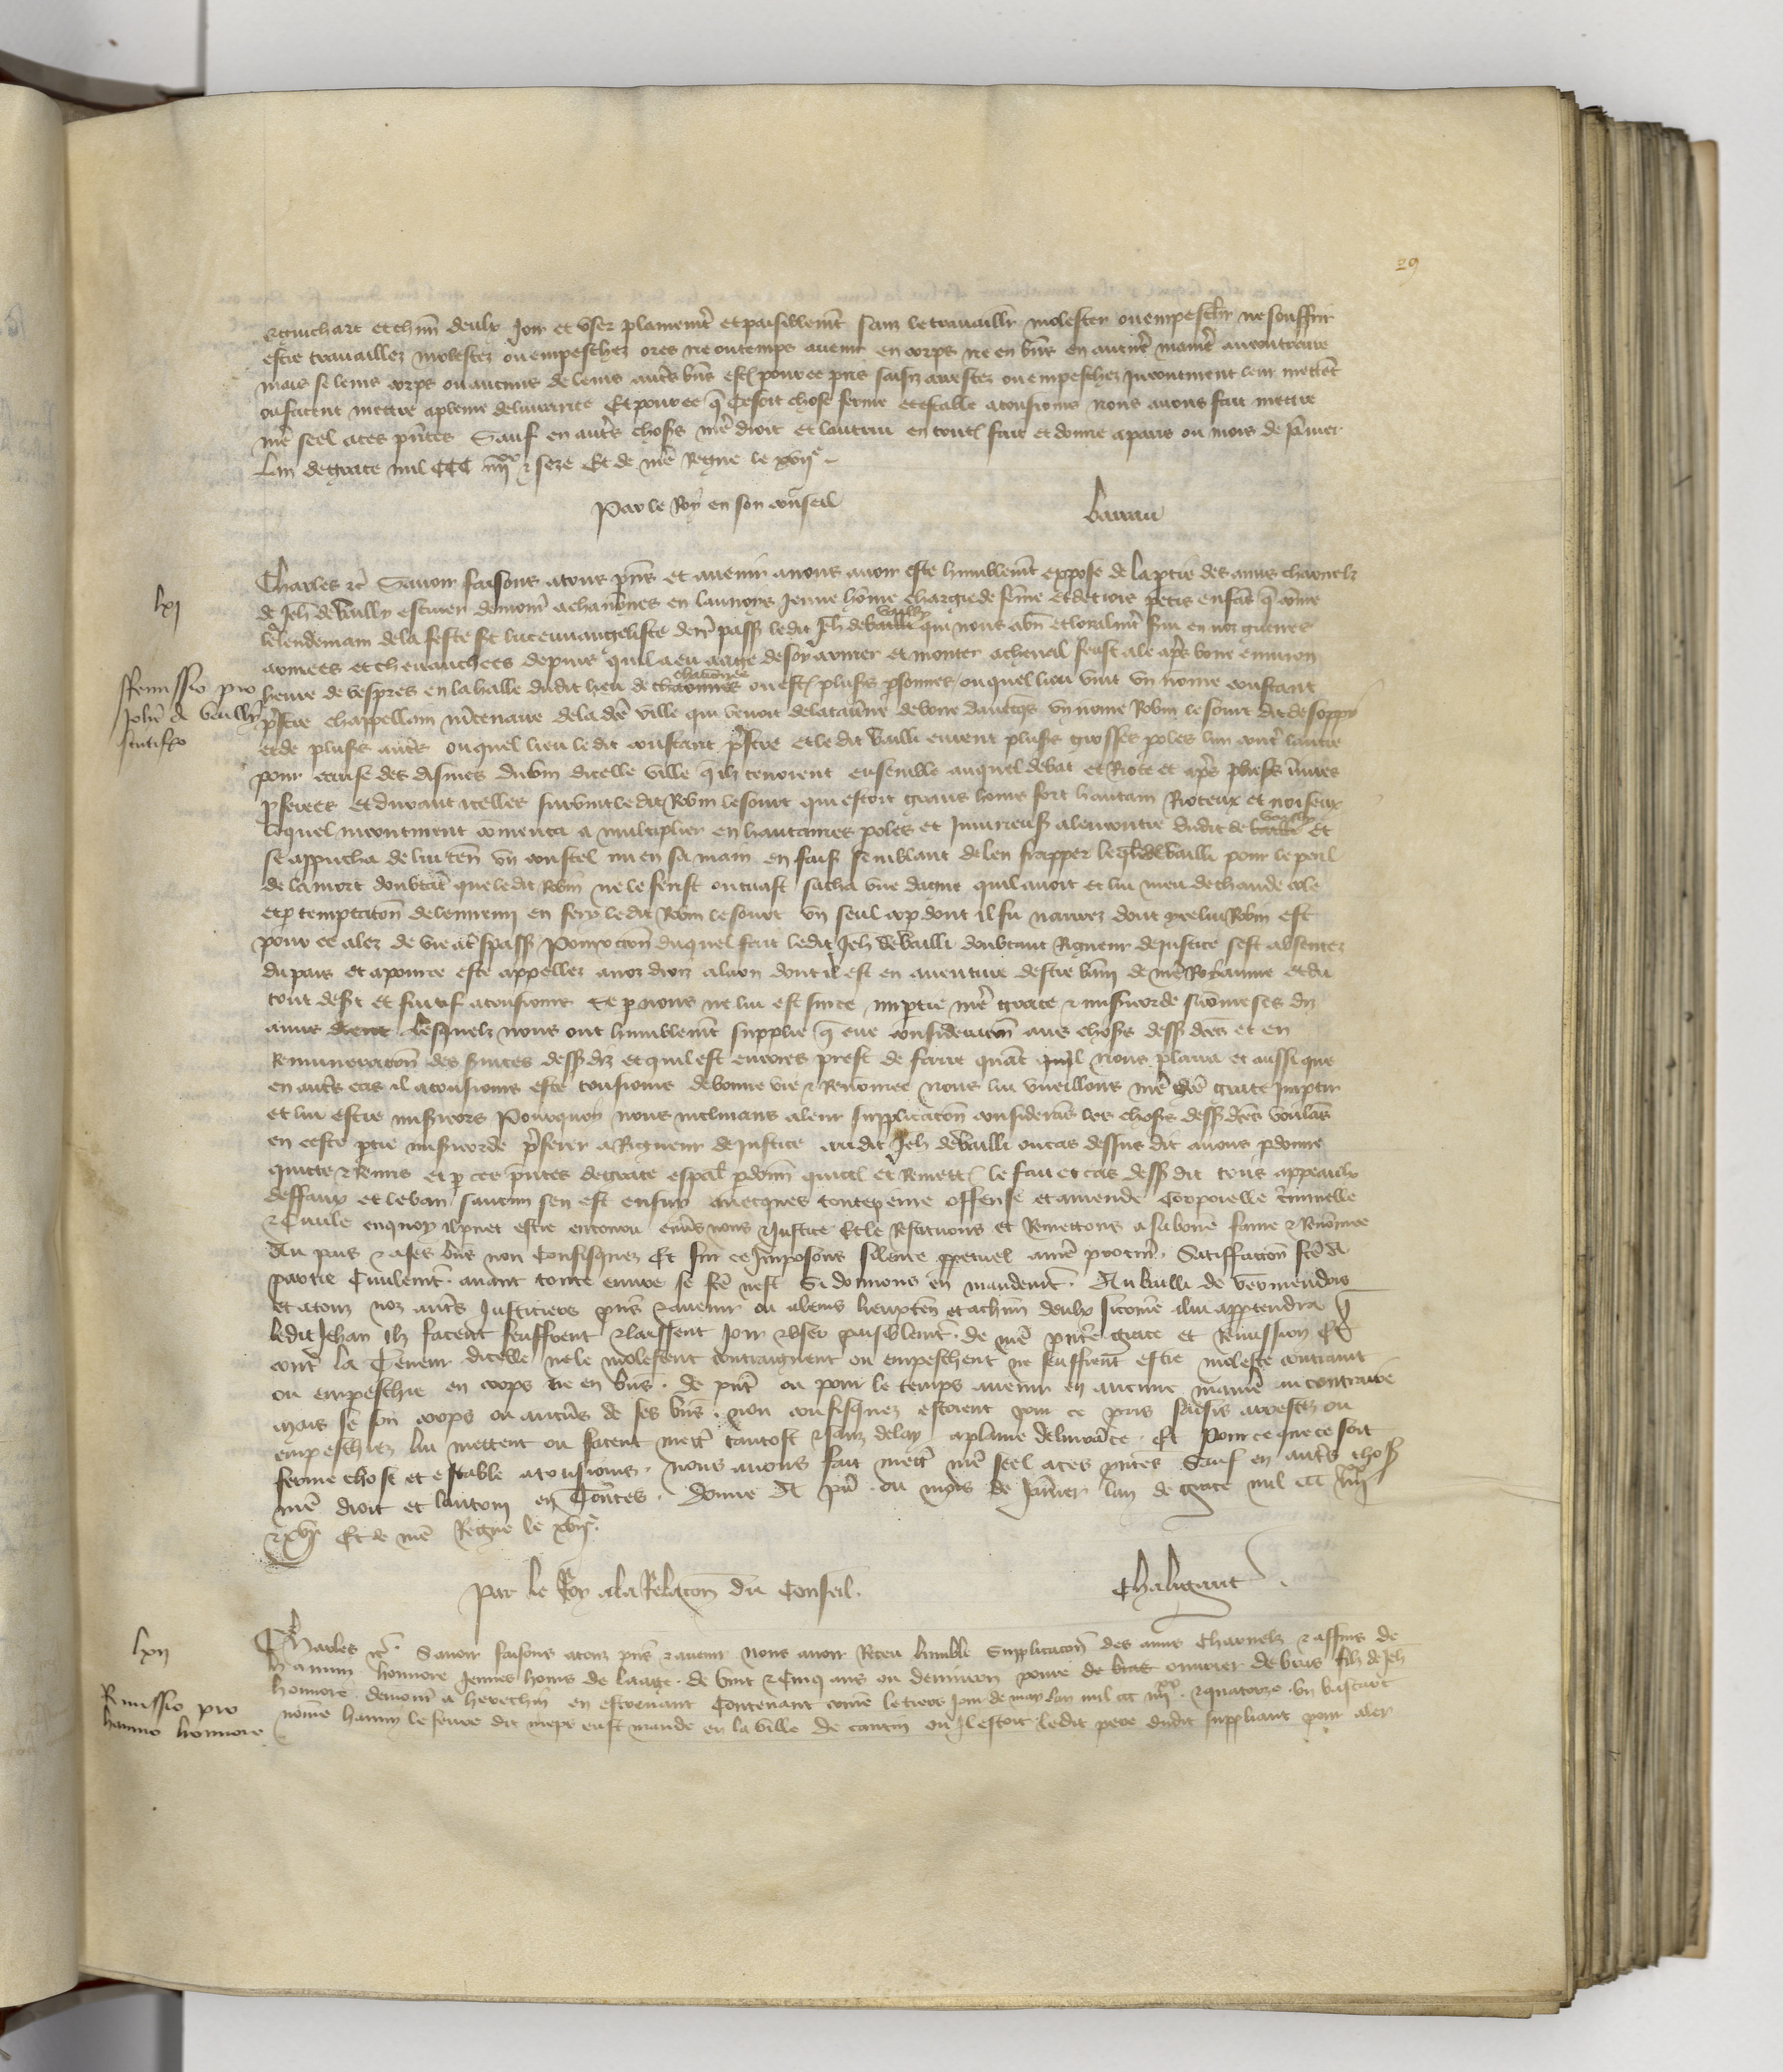 29
et chun deulx joir et user plainemt et paisiblemt sanz le travaillr molester ou empeschr ne souffrir
estre travaillez molestez ou empeschez ores ne ou temps avenir en corps ne en bns en aucune manre au contraire
mais se leurs corps ou aucuns de leurs autrs bns pour ce pris saisiz arrestez ou empeschez incontinent leur mettent
ou facent mettre a plaine delivrance Et pour ce q ce soit chose ferme et estable a tousiours nous avons fait mettre
nre seel a ces pntes Sauf en autrs choses nre droit et lautrui en toutes fait et donne a paris ou mois de janvier
Lan de grace mil CCC iiiixx et seze Et de nre Regne le xviie
Par le Roy en son conseil
barrau
lxi
Charles etc Savoir faisons a tous pns et avenir a nous avoir este humblemt expose de la ptie des amis charnelz
de Jeh de Vailly escuier demour a en Launoys jeune home chargie de feme et de trois petis enfas q come
le lendemain de la feste st luc euvangeliste derr passe ledit Jeh de vailly qui nous a bn et loyalmt servi en noz guerres
armees et chevauchees depuis quil a eu aage de soy armer et monter a cheval feust ale aprs boire environ
Remissio pro
Johe de Veully
scutifero
heure de vespres en la halle dudit lieu de ou estoient pluss psonnes ouquel lieu vint un nome constant
prstre chappellain de la de ville qui venoit de la taverne de boire davecqs un nome Robin le sourt dit
et de pluss autrs ouquel lieu ledit constant prstre et ledit Vailli eurent pluss grosses poles lun contr lautre
pour cause des dismes du vin dicelle ville q ilz tenoient ensemble auquel debat et Riote et aprs pluss
pferees et durant icelles survint ledit Robin le sourt qui estoit grans homs fort hautain Rioteux et noiseux
lequel incontinent comenca a multiplier en hautaines poles et injurieuses a lencontre dudit de vailly et
se appucha de lui ten un coustel nu en sa main en fais semblant de len frapper leql de vailli pour le peril
de la mort doubtat que ledit Robin ne le ferist ou tuast sacha une dague quil avoit et lui meu de chaude cole
et p temptacon de lennemi en fery ledit Robin le sourt un seul cop dont il fu navrez dont ycelui Robin est
pour ce alez de vie a trspass Pour occon duquel fait ledit Jeh de Vailli doubtant Rigueur de justice sest absentez
du pais et a pour ce este appellez a noz droiz a laon dont il est en aventure destre bani de nre Royaume et du
tout desert et fuitif a tousiours se p nous ne lui est sur ce impartie nre grace et misericorde si come ses diz
amis dient Lesquelz nous ont humblemt supplie q eue consideracon aus choses dess dces et en
Remuneracon des services dess diz et quil est encores prest de faire quat quil nous plaira et aussi que
en autrs cas il a tousiours este tousiours de bonne vie et Renomee nous lui vueillons nre de grace impartir
et lui estre misericors Pourquoy nous inclinans a leur supplicacon considerans les choses dess dces voulas
en ceste ptie misericorde prferer a Rigueur de justice audit Jeh de Vailli ou cas dessus dit avons pdonne
quicte et Remis et p ces pntes de grace espcal pdonn quictons et Remettons le fait et cas dess dit tous appeaulx
deffaux et le ban saucun sen est ensuy avecques toute peine offense et amende Corporelle criminelle
et Civile en quoy il puet estre encouru envs nous et justice Et le Restituons et Remettons a sa bone fame et Renomee
Au pais et a ses bns non Confisquez Et sur ce Imposons silence ppetuel a nre procur. Satiffaccon fce A
partie Civilemt avant toute euvre se fce nest Si donnons en mandemt. Au bailli de vermendois
et a tous noz autrs Justiciers pns et avenir ou a leurs lieuxten et a chun deulx sicome a lui apptendra Q
ledit Jehan ilz facent seuffrent et laissent joir et user paisiblemt. de nre pnte grace et Remission Et
contr la Teneur dicelle ne le molestent contraignent ou empeschent ne seuffrent estre moleste contraint
ou empeschie en corps ne en bns. de pnt ou pour le temps avenir en aucune manre au contraire
Mais se son corps ou aucuns de ses bns. non confisquez estoient pour ce pris saisis arrestez ou
empeschiez lui mettent ou facent mettr tantost et sanz delay a plaine delivrace. Et Pour ce que ce soit
ferme chose et estable a tousiours. Nous avons fait mettr nre seel a ces pntes Sauf en autrs choses
nre droit et lautrui en Toutes. Donne A pas. ou mois de Janvier lan de grace mil ccc iiiixx
et xvi Et de nre Regne le xviie.
Par le Roy a la Relacon du Conseil.
Chaligaut
lxii
Charles etc. Savoir faisons a touz pns et avenir nous avoir Receu lumble Supplicacon des amis Charnelz et affins de
hanin honnore jeunes homs de laage. de vint et Cinq ans ou denviron povre de bras ouvrier de bras filz de Jeh
Remissio pro
hanino honnore
honnore demour a herechin en ostrevant Contenant come le tiers jour de may lan mil ccc iiiixx et quatorze. un bastart
nome hanny le fevre dit eust mande en la ville de cantin ou il estoit ledit pere dudit suppliant pour aler